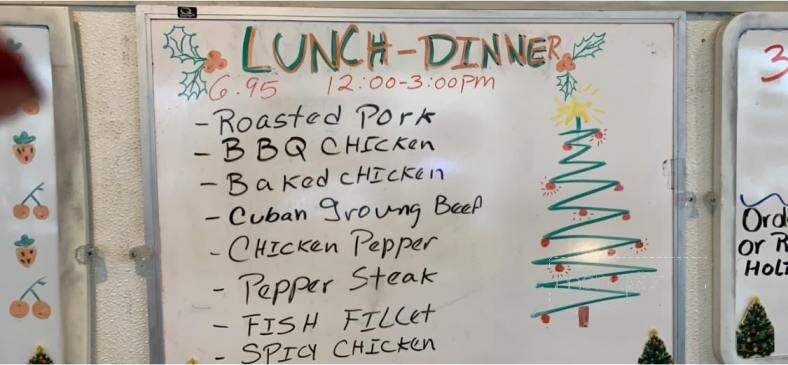 LUNCH-DINNER
6.95 12:00-3:00pm
- Roasted Pork
- BBQ CHICKen
- Baked CHICKen
- Cuban groung Beef
- CHICKen Pepper
- Pepper Steak
- FISH FILLet
- SPICY CHICKen
3
Ord
or R
HOLI